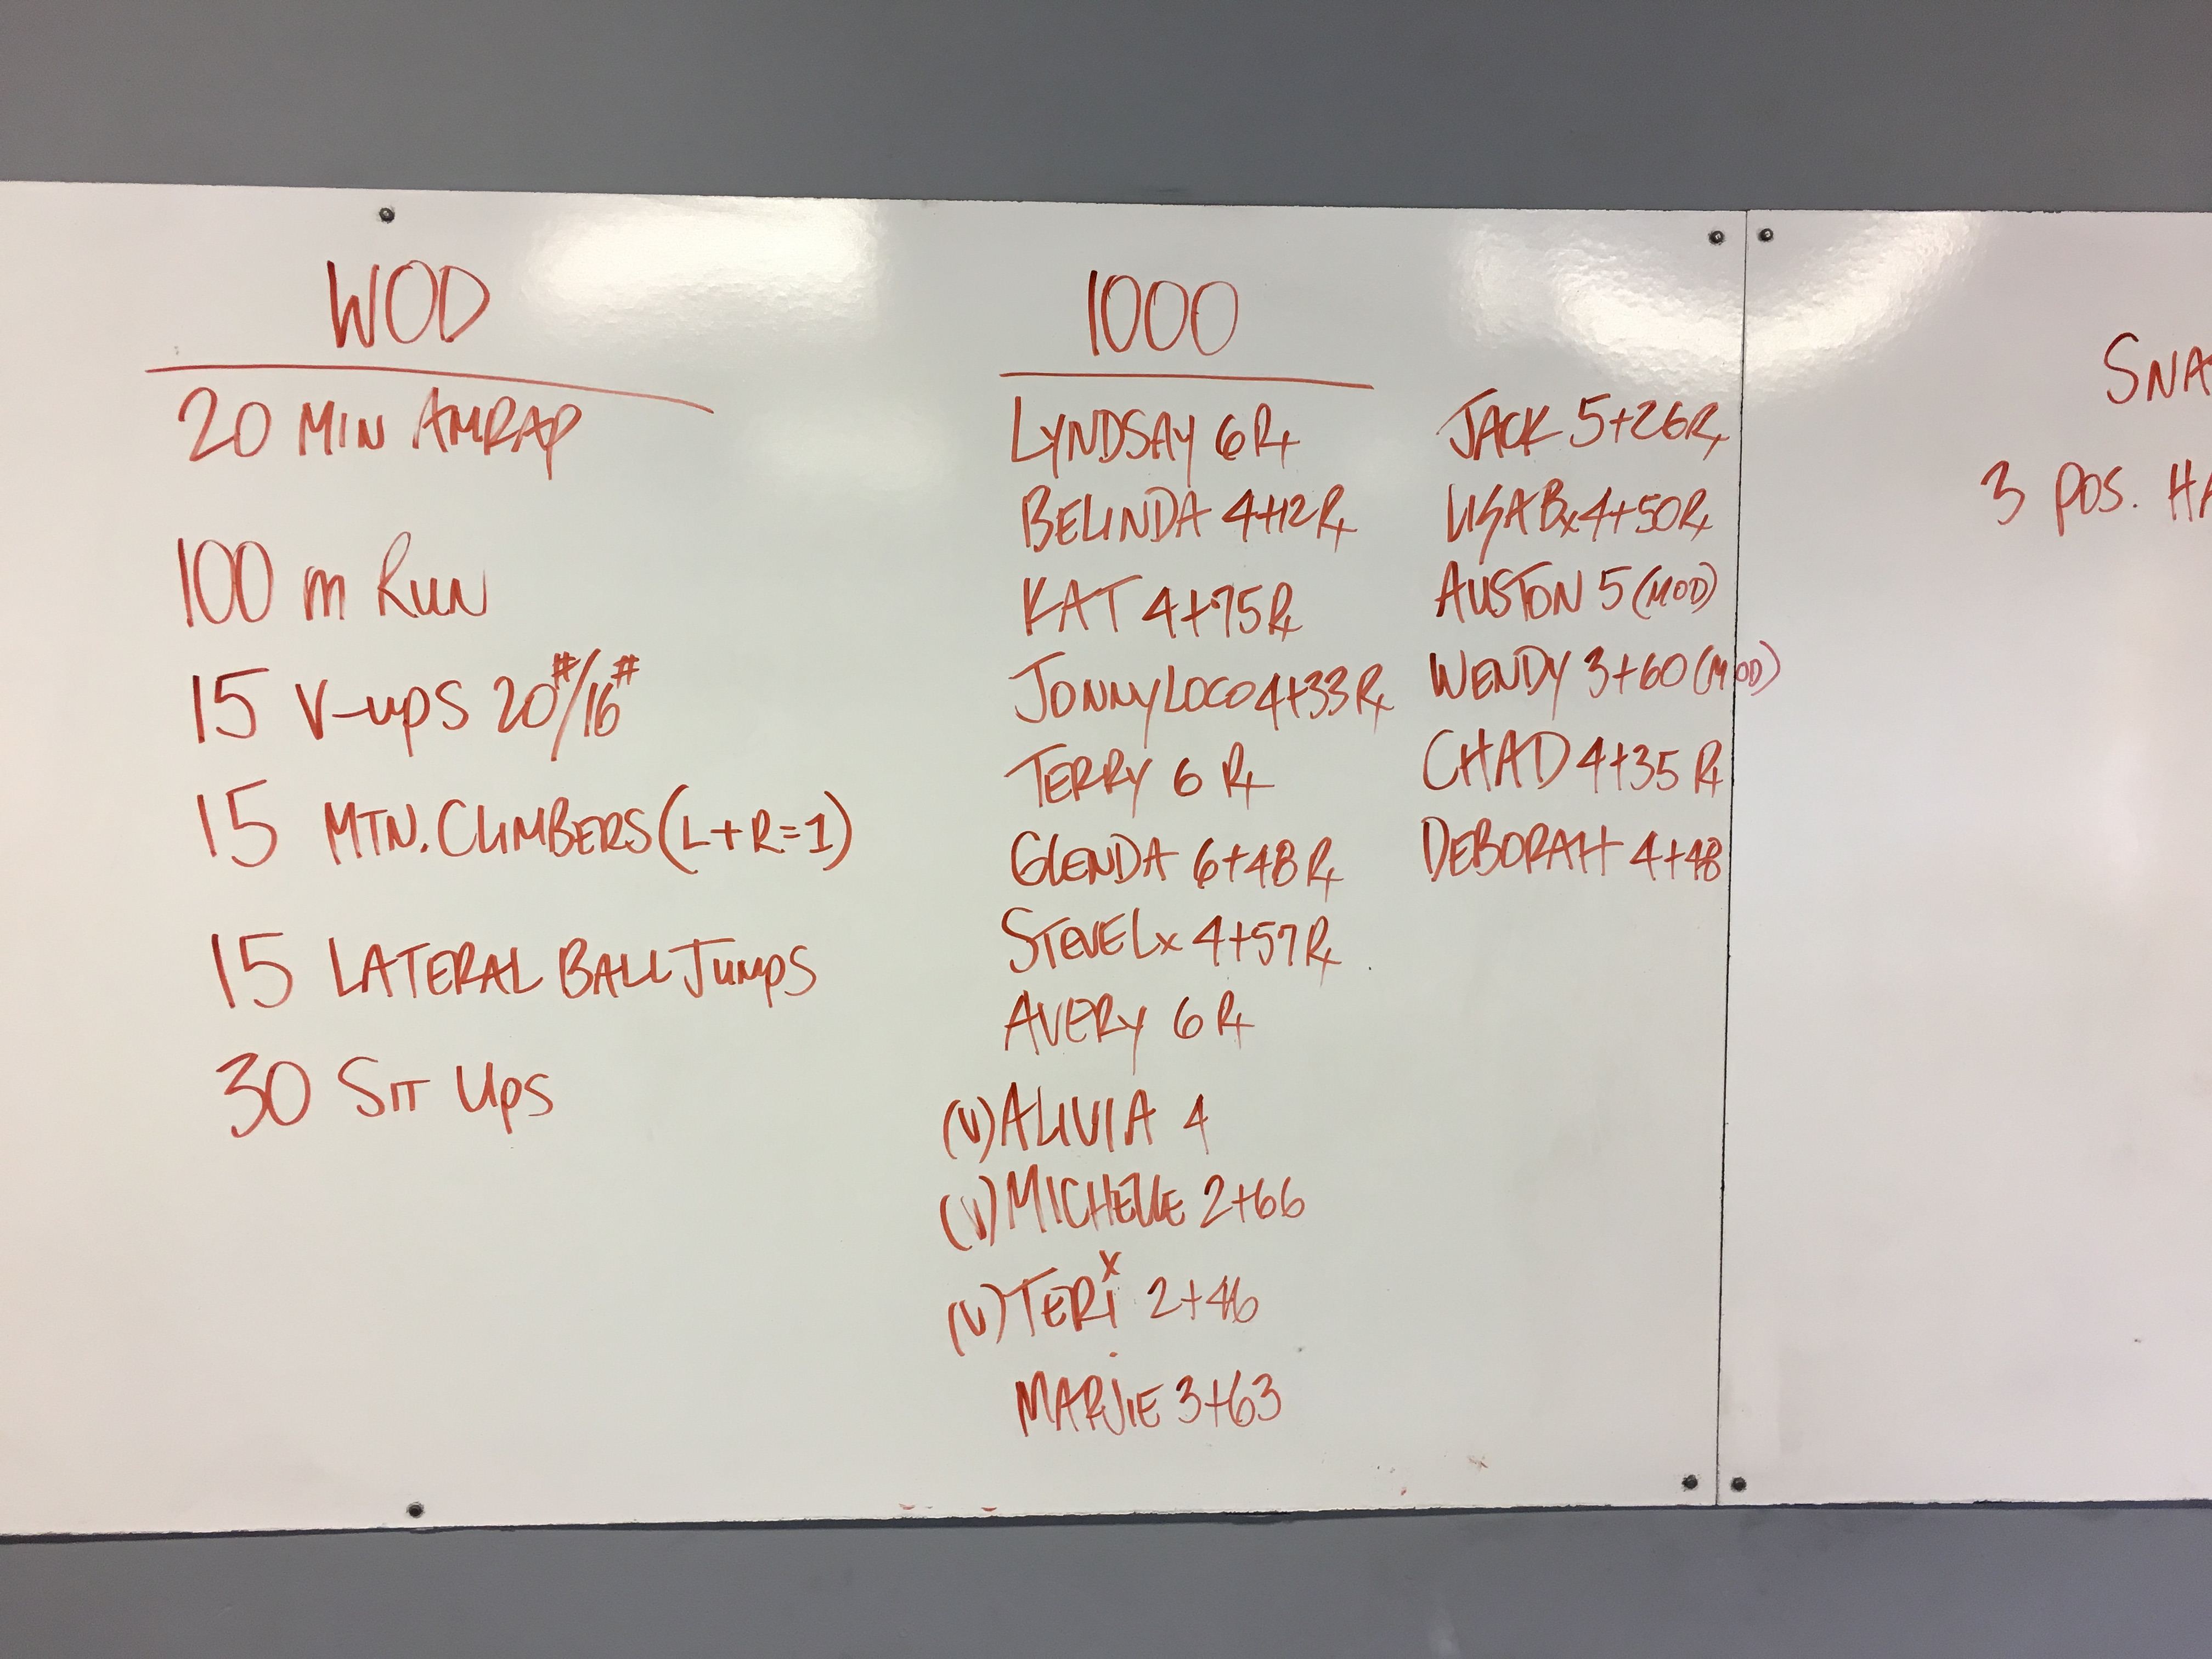 WOD
20 MIN AMRAP
100 m RUN
15 V-UPS 20#/16#
15 MTN. CLIMBERS (L+R=1)
15 LATERAL BALL JUMPS
30 SIT UPS
1000
LYNDSAY 6 Rx
BELINDA 4+12 Rx
KAT 4+75 Rx
JONNY LOCO 4+33 Rx
TERRY 6 Rx
GLENDA 6+48 Rx
STEVE Lx 4+57 Rx
AVERY 6 Rx
(V) ALIVIA 4
(V) MICHELLE 2+66
(V) TERI x 2+46
MARJIE 3+63
JACK 5+26 Rx
LISA Bx 4+50 Rx
AUSTON 5 (MOD)
WENDY 3+60 (MOD)
CHAD 4+35 Rx
DEBORAH 4+48
SNA
3 POS. HA